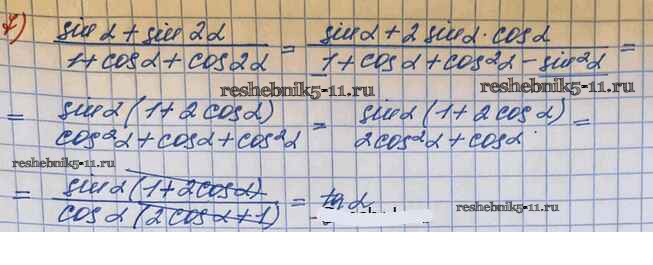 7) (sin α + sin 2α)/(1 + cos α + cos 2α) = (sin α + 2 sin α · cos α)/(1 + cos α + cos²α − sin²α) =
reshebnik5-11.ru reshebnik5-11.ru
= (sin α (1 + 2 cos α))/(cos²α + cos α + cos²α) = (sin α (1 + 2 cos α))/(2cos²α + cos α) =
reshebnik5-11.ru
= (sin α (1 + 2cos α))/(cos α (2 cos α + 1)) = tg α
reshebnik5-11.ru